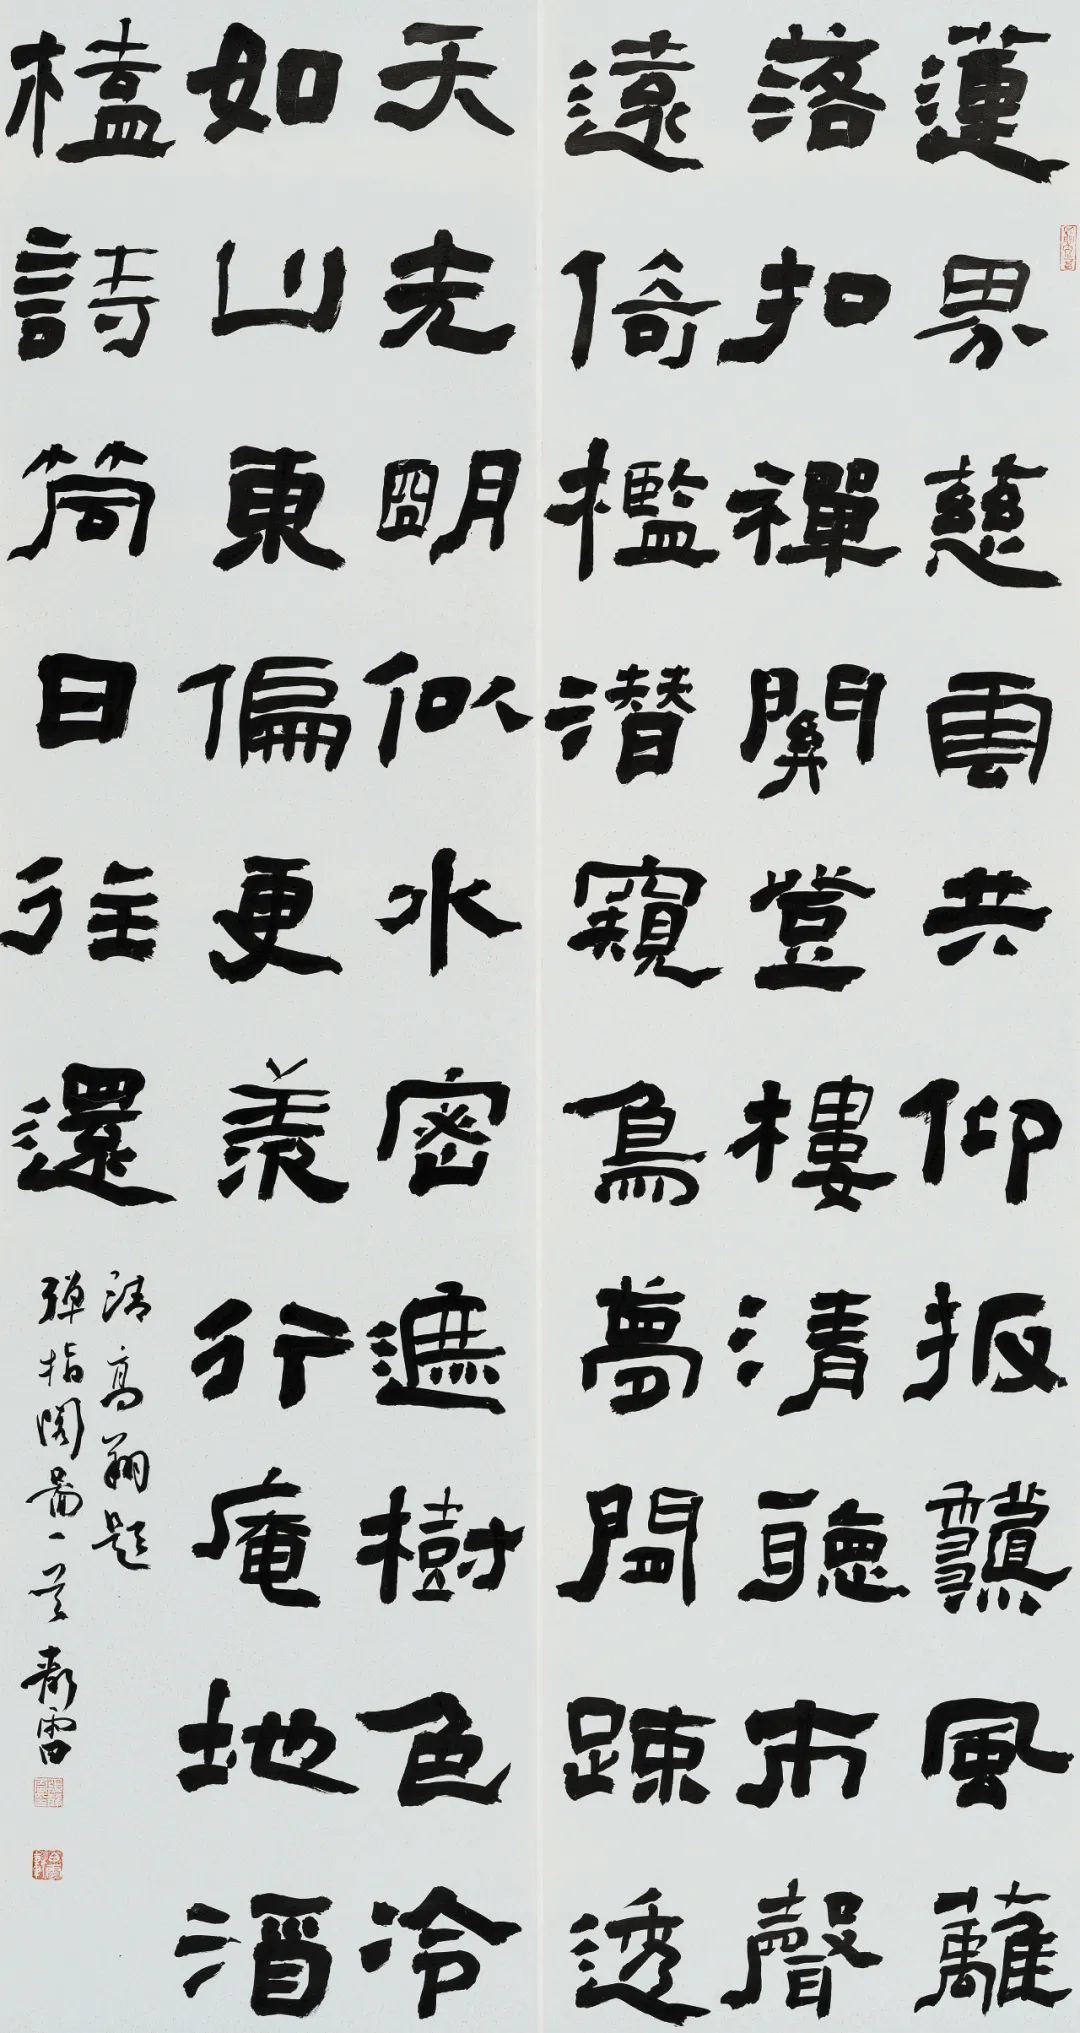 蓮界慈雲共仰扳秋風蘺
落扣禪關登樓清聽市聲
遠倚檻潛窺鳥夢閒疎透
天光明似水密遮樹色冷
如山東偏更羨行庵地酒
榼詩筒日往還
清高翔題
彈指閣圖一首